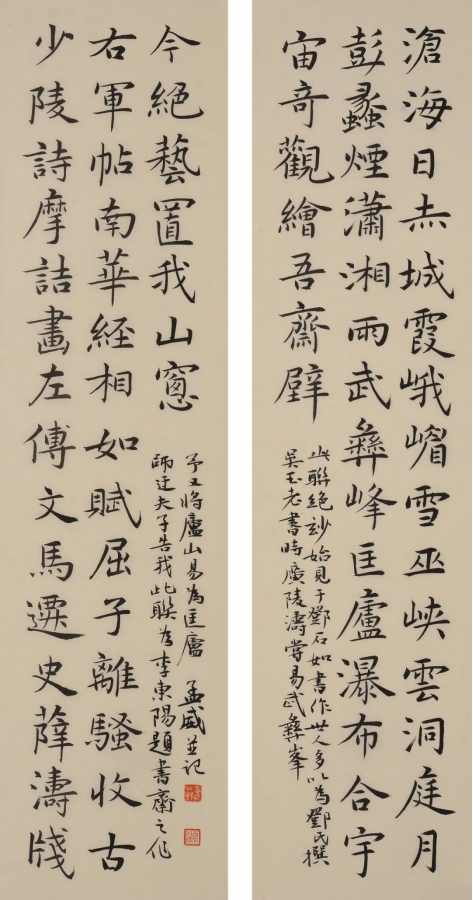 滄海日赤城霞峨嵋雪巫峽雲洞庭月
彭蠡煙瀟湘雨武彝峰匡廬瀑布合宇
宙奇觀繪吾齋壁
此聯絕妙始見于鄧石如書作世人多以為鄧氏撰
吳玉老書時廣陵濤嘗易武彝峯
少陵詩摩詰畫左傳文馬遷史薛濤牋
右軍帖南華經相如賦屈子離騷收古
今絕藝置我山窻
師迂夫子告我此聯為李東陽題書齋之作
予又將廬山易為匡廬 孟威並記